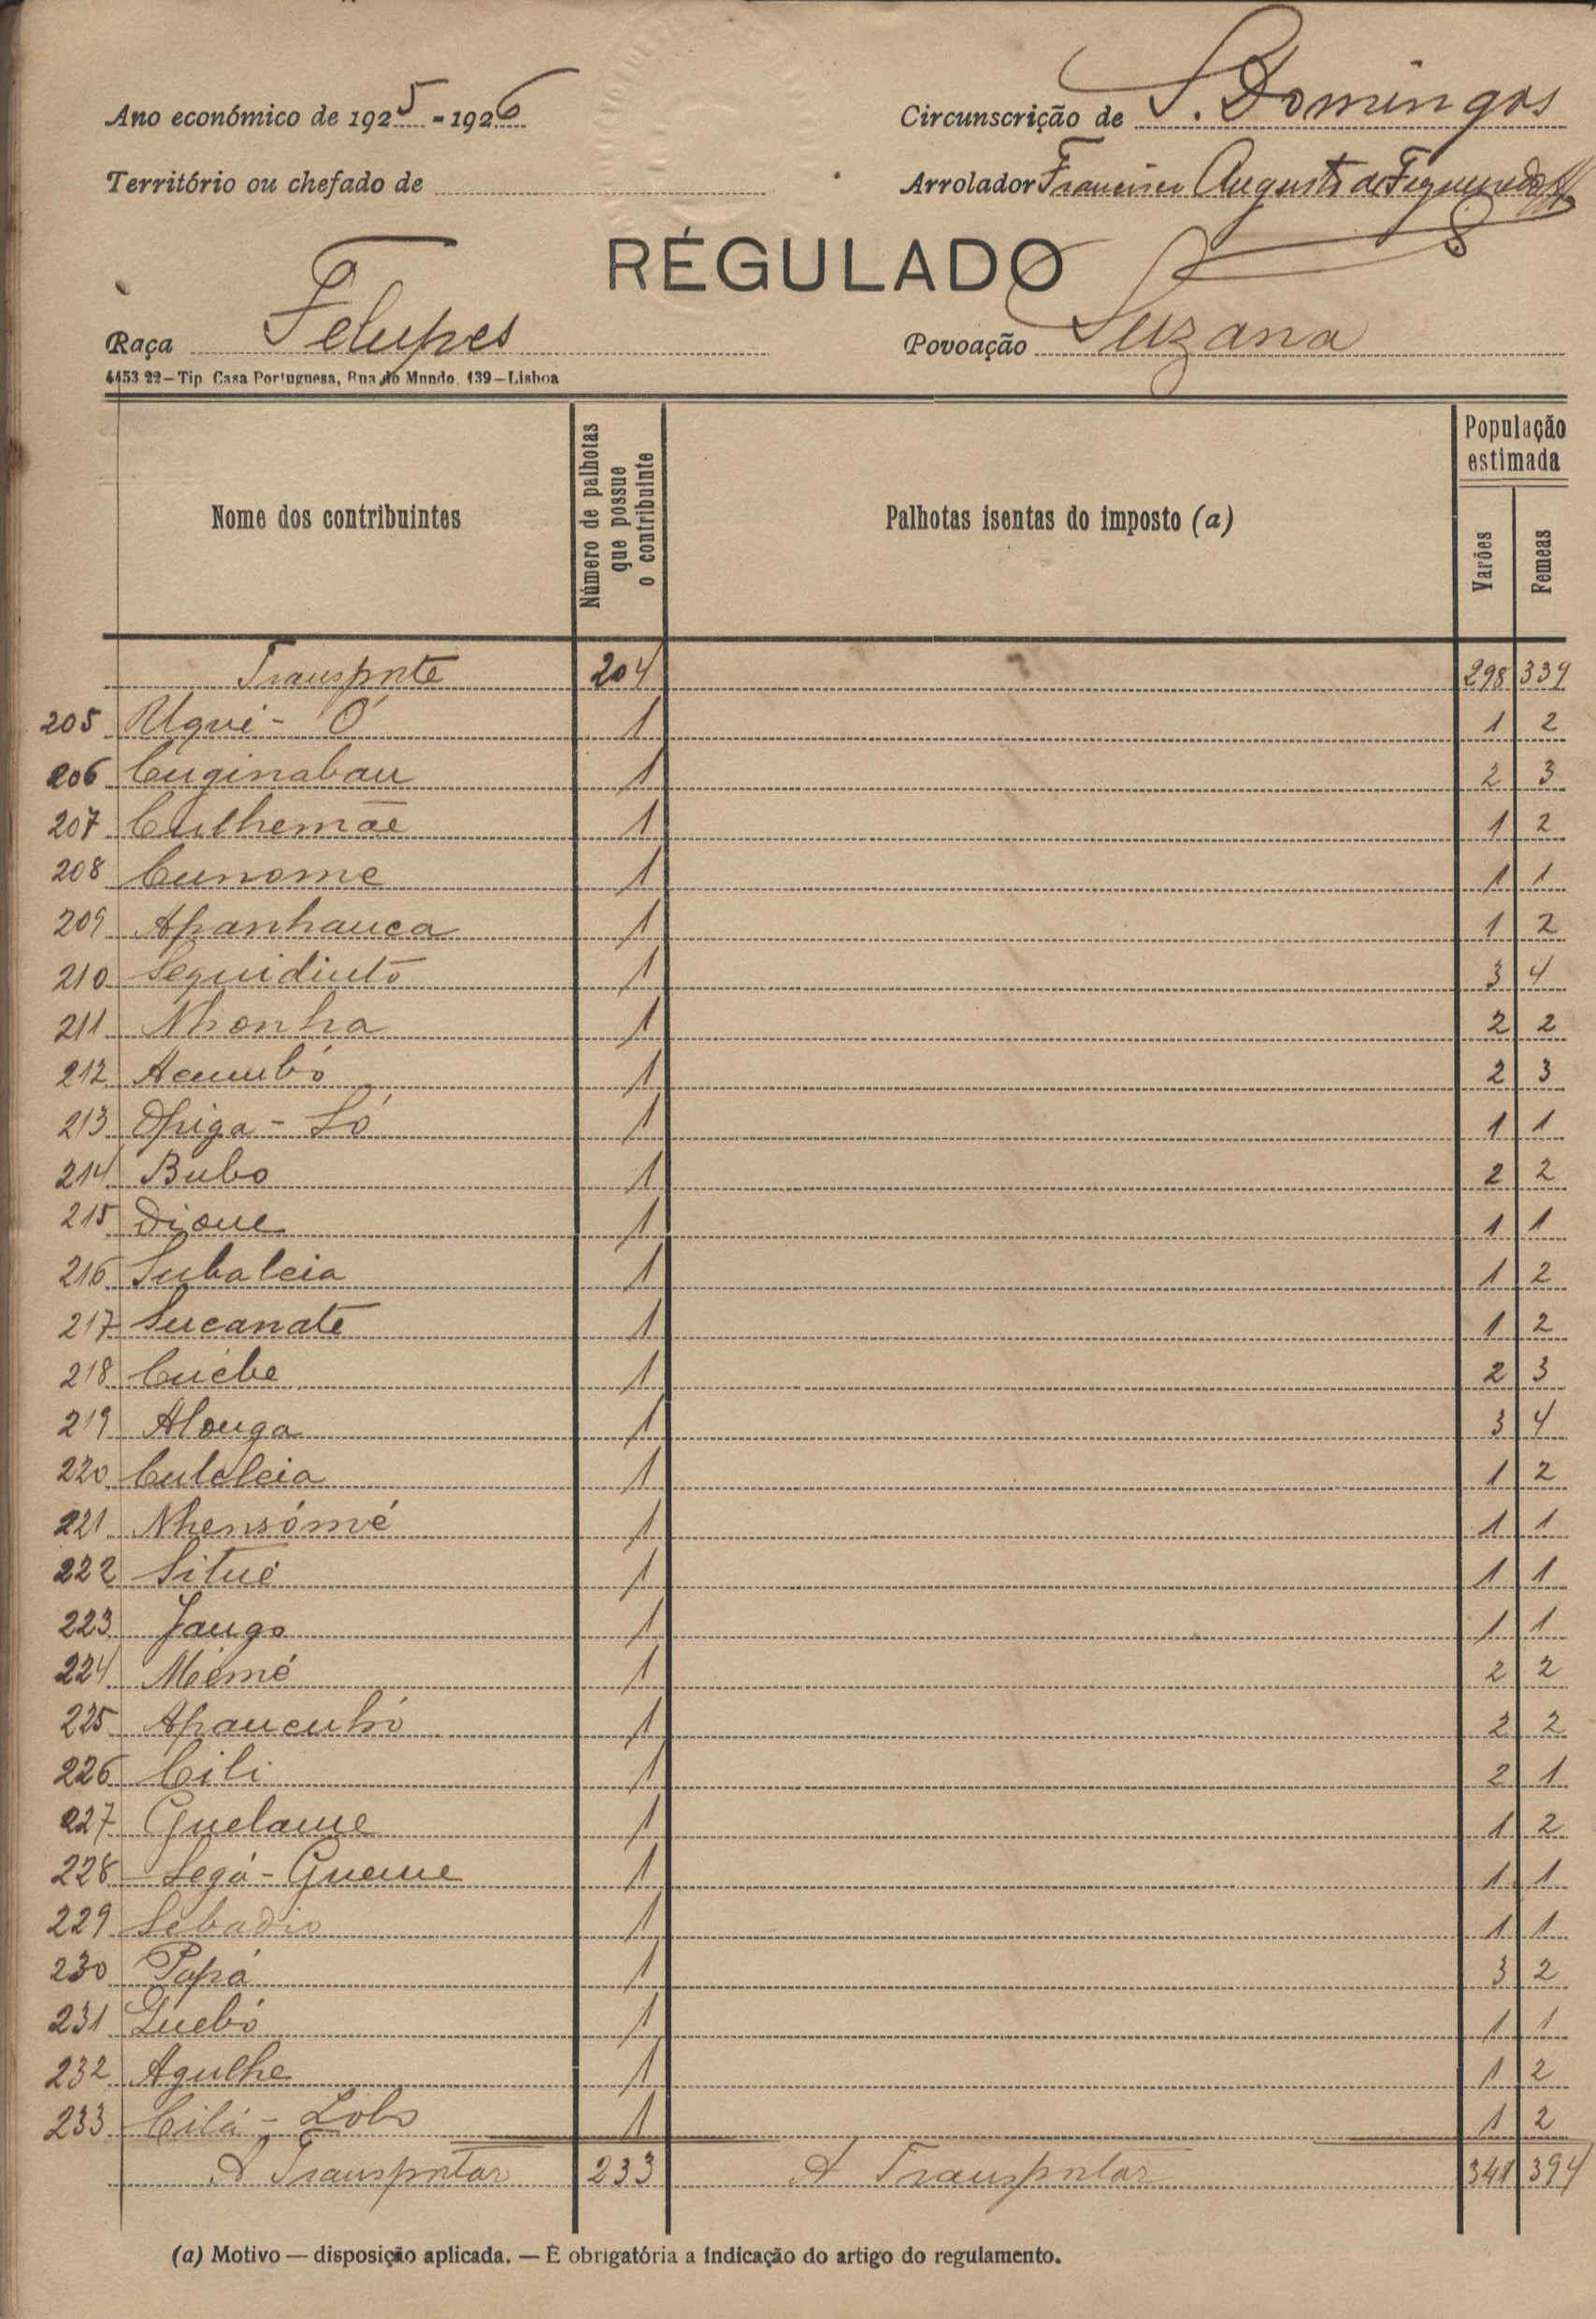 Ano económico de 1925 - 1926
Circunscrição de S. Domingos
Território ou chefado de
Arrolador Francisco Augusto de Figueiredo
RÉGULADO
Raça Felupes
Povoação Suzana
4453 22—Tip. Casa Portuguesa, Rua do Mundo, 139—Lisboa
Nome dos contribuintes
Número de palhotas que possue o contribuinte
Palhotas isentas do imposto (a)
População estimada
Varões
Femeas
Transporte 204 298 339
205 Uqui - Ó 1 1 2
206 Cuginabau 1 2 3
207 Culhemãe 1 1 2
208 Cunome 1 1 1
209 Apanhauca 1 1 2
210 Seguidintó 1 3 4
211 Nhonha 1 2 2
212 Acumbó 1 2 3
213 Opiga - Só 1 1 1
214 Bubo 1 2 2
215 Dioue 1 1 1
216 Subaleia 1 1 2
217 Sucanate 1 1 2
218 Cuébe 1 2 3
219 Alouga 1 3 4
220 Culeleia 1 1 2
221 Nhensómé 1 1 1
222 Situé 1 1 1
223 Jaugo 1 1 1
224 Mémé 1 2 2
225 Apaucuhó 1 2 2
226 Cili 1 2 1
227 Guelaue 1 1 2
228 Segá - Gueue 1 1 1
229 Sebadio 1 1 1
230 Papá 1 3 2
231 Quebó 1 1 1
232 Agulhe 1 1 2
233 Cilá - Lobo 1 1 2
A Transportar 233 A Transportar 341 394
(a) Motivo — disposição aplicada. — É obrigatória a indicação do artigo do regulamento.